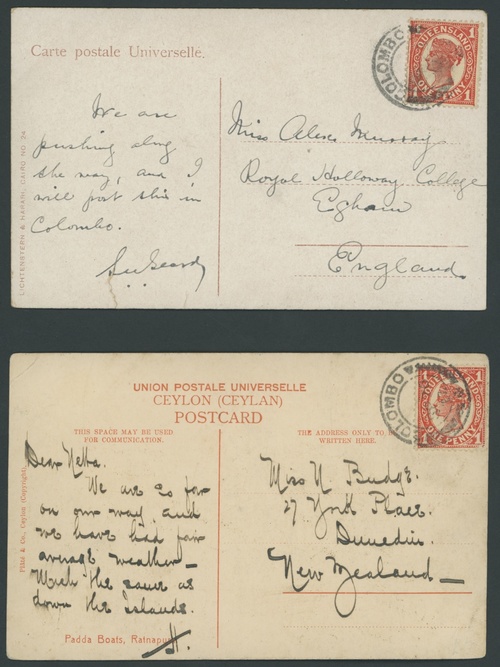 Carte postale Universelle.
COLOMBO
QUEENSLAND
1 1
ONE PENNY
We are
pushing along
the way, and I
will post this in
Colombo.
Miss Alex Murray
Royal Holloway College
Egham
England
LICHTENSTERN & HARARI, CAIRO NO. 24
UNION POSTALE UNIVERSELLE
CEYLON (CEYLAN)
POSTCARD
COLOMBO
1 1
PENNY
THIS SPACE MAY BE USED
FOR COMMUNICATION.
THE ADDRESS ONLY TO
WRITTEN HERE.
Dear Netta.
We are so far
on our way and
we have had fair
average weather—
Much the same as
down the Islands.
H.
Miss N Budge.
27 York Place.
Dunedin.
New Zealand—
Plâté & Co., Ceylon (Copyright).
Padda Boats, Ratnapura